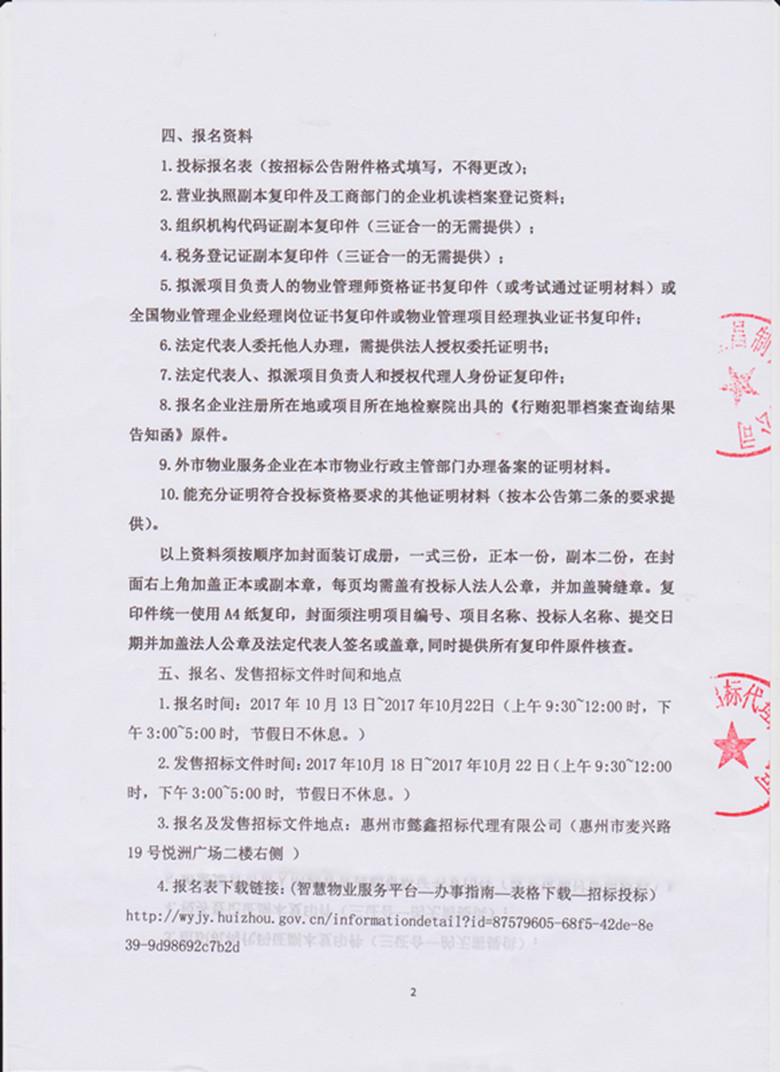 四、报名资料
1.投标报名表（按招标公告附件格式填写，不得更改）；
2.营业执照副本复印件及工商部门的企业机读档案登记资料；
3.组织机构代码证副本复印件（三证合一的无需提供）；
4.税务登记证副本复印件（三证合一的无需提供）；
5.拟派项目负责人的物业管理师资格证书复印件（或考试通过证明材料）或
全国物业管理企业经理岗位证书复印件或物业管理项目经理执业证书复印件；
6.法定代表人委托他人办理，需提供法人授权委托证明书；
7.法定代表人、拟派项目负责人和授权代理人身份证复印件；
8.报名企业注册所在地或项目所在地检察院出具的《行贿犯罪档案查询结果
告知函》原件。
9.外市物业服务企业在本市物业行政主管部门办理备案的证明材料。
10.能充分证明符合投标资格要求的其他证明材料（按本公告第二条的要求提
供）。
以上资料须按顺序加封面装订成册，一式三份，正本一份，副本二份，在封
面右上角加盖正本或副本章，每页均需盖有投标人法人公章，并加盖骑缝章。复
印件统一使用A4纸复印，封面须注明项目编号、项目名称、投标人名称、提交日
期并加盖法人公章及法定代表人签名或盖章,同时提供所有复印件原件核查。
五、报名、发售招标文件时间和地点
1.报名时间：2017 年 10 月 13 日~2017 年10月22日（上午 9:30~12:00 时，下
午 3:00~5:00 时, 节假日不休息。）
2.发售招标文件时间：2017 年10月 18 日~2017 年10月 22 日（上午 9:30~12:00
时，下午 3:00~5:00 时, 节假日不休息。）
3.报名及发售招标文件地点：惠州市懿鑫招标代理有限公司（惠州市麦兴路
19 号悦洲广场二楼右侧 ）
4.报名表下载链接：(智慧物业服务平台—办事指南—表格下载—招标投标）
http://wyjy.huizhou.gov.cn/informationdetail?id=87579605-68f5-42de-8e
39-9d98692c7b2d
2
制
公司
招标代理